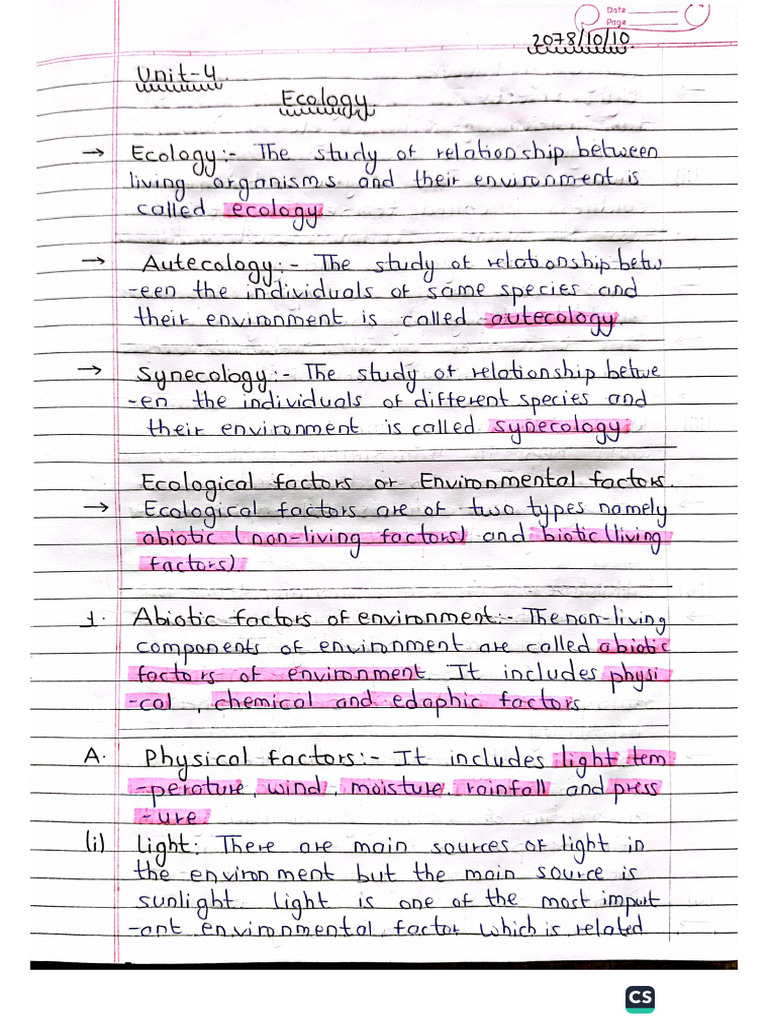 Date
Page
2078/10/10
Unit-4
Ecology
→ Ecology:- The study of relationship between
living organisms and their environment is
called ecology
→ Autecology:- The study of relationship betw
-een the individuals of same species and
their environment is called autecology.
→ Synecology:- The study of relationship betwe
-en the individuals of different species and
their environment is called synecology.
Ecological factors or Environmental factors.
→ Ecological factors are of two types namely
abiotic (non-living factors) and biotic (living
factors).
1. Abiotic factors of environment:- The non-living
components of environment are called abiotic
factors of environment. It includes physi
-cal, chemical and edaphic factors.
A. Physical factors:- It includes light, tem
-perature, wind, moisture, rainfall and press
-ure
(i) Light: There are main sources of light in
the environment but the main source is
sunlight. Light is one of the most import
-ant environmental factor which is related
CS